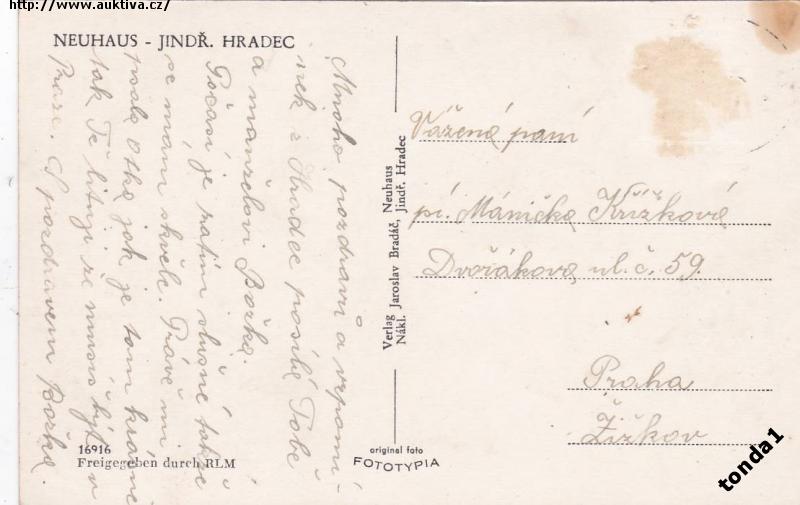 http://www.auktiva.cz/
NEUHAUS - JINDŘ. HRADEC
Mnoho pozdravů a vzpomí-
nek z Hradec posílá Tobě
a manželovi Božka.
Počasí je zatím slušné takže
se mám skvěle. Právě mi
psala Otka jak je tam krásně
tak Tě lituji že musíš být v
Praze. S pozdravem Božka.
16916
Freigegeben durch RLM
Verlag Jaroslav Bradáč, Neuhaus
Nákl. Jaroslav Bradáč, Jindř. Hradec
original foto
FOTOTYPIA
Vážená paní
pí. Mánička Křížková
Dvořákova ul. č. 59.
Praha
Žižkov
tonda1